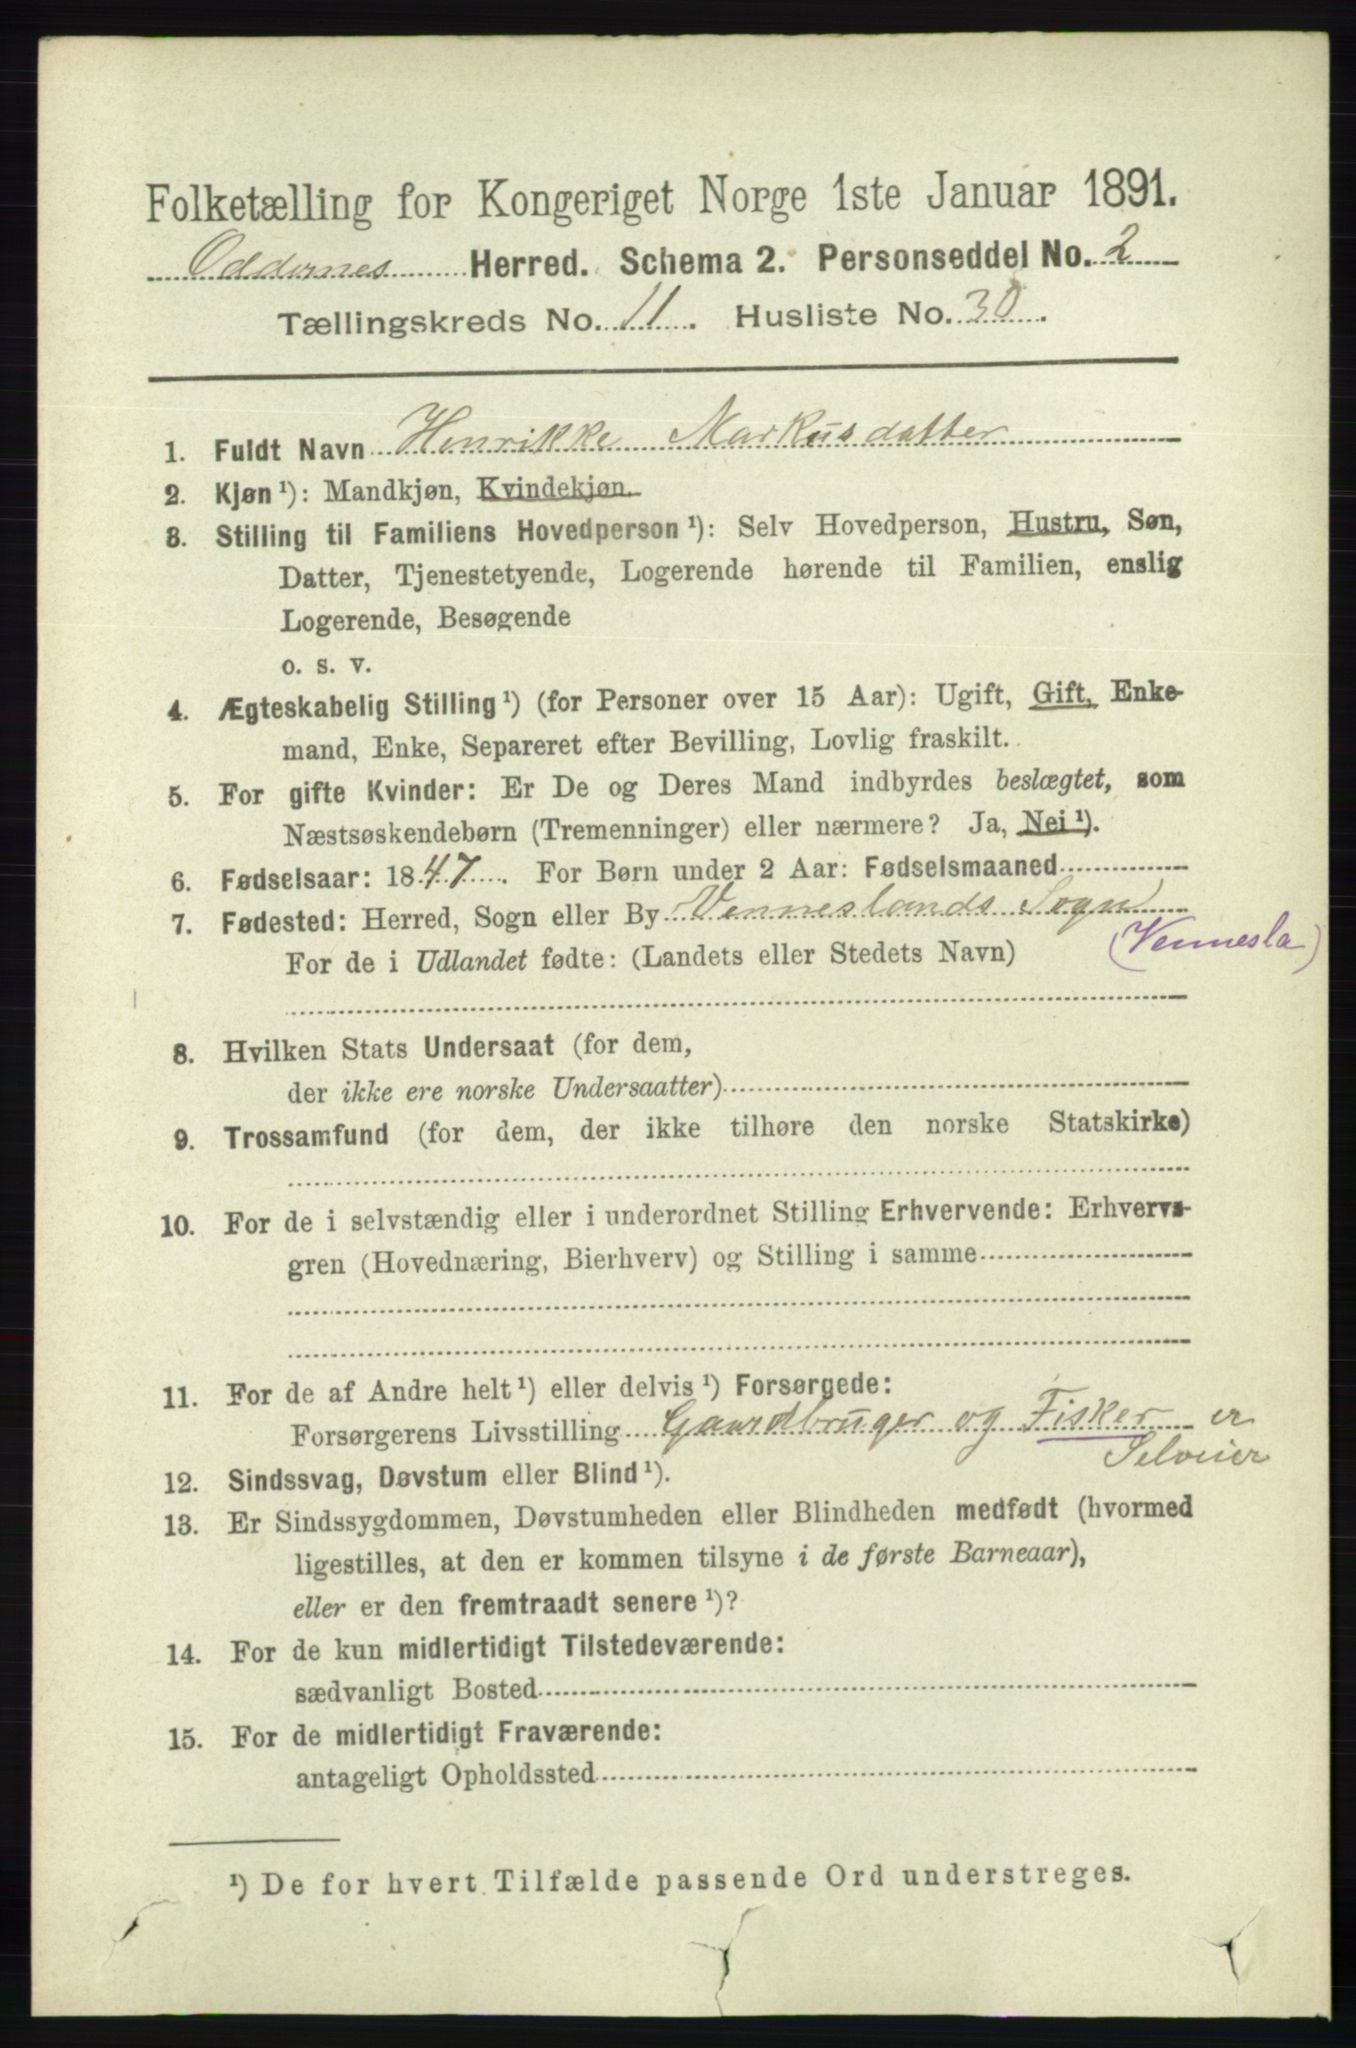 Folketælling for Kongeriget Norge 1ste Januar 1891.
Oddernes Herred. Schema 2. Personseddel No. 2
Tællingskreds No. 11. Husliste No. 30.
1. Fuldt Navn Henrikke Markusdatter
2. Kjøn ¹): Mandkjøn, Kvindekjøn.
3. Stilling til Familiens Hovedperson ¹): Selv Hovedperson, Hustru, Søn,
Datter, Tjenestetyende, Logerende hørende til Familien, enslig
Logerende, Besøgende
o. s. v.
4. Ægteskabelig Stilling ¹) (for Personer over 15 Aar): Ugift, Gift, Enke-
mand, Enke, Separeret efter Bevilling, Lovlig fraskilt.
5. For gifte Kvinder: Er De og Deres Mand indbyrdes beslægtet, som
Næstsøskendebørn (Tremenninger) eller nærmere? Ja, Nei ¹).
6. Fødselsaar: 1847. For Børn under 2 Aar: Fødselsmaaned
7. Fødested: Herred, Sogn eller By Venneslands Sogn
(Vennesla)
For de i Udlandet fødte: (Landets eller Stedets Navn)
8. Hvilken Stats Undersaat (for dem,
der ikke ere norske Undersaatter)
9. Trossamfund (for dem, der ikke tilhøre den norske Statskirke)
10. For de i selvstændig eller i underordnet Stilling Erhvervende: Erhvervs-
gren (Hovednæring, Bierhverv) og Stilling i samme
11. For de af Andre helt ¹) eller delvis ¹) Forsørgede:
Forsørgerens Livsstilling Gaardbruger og Fisker er
Selveier
12. Sindssvag, Døvstum eller Blind ¹).
13. Er Sindssygdommen, Døvstumheden eller Blindheden medfødt (hvormed
ligestilles, at den er kommen tilsyne i de første Barneaar),
eller er den fremtraadt senere ¹)?
14. For de kun midlertidigt Tilstedeværende:
sædvanligt Bosted
15. For de midlertidigt Fraværende:
antageligt Opholdssted
¹) De for hvert Tilfælde passende Ord understreges.